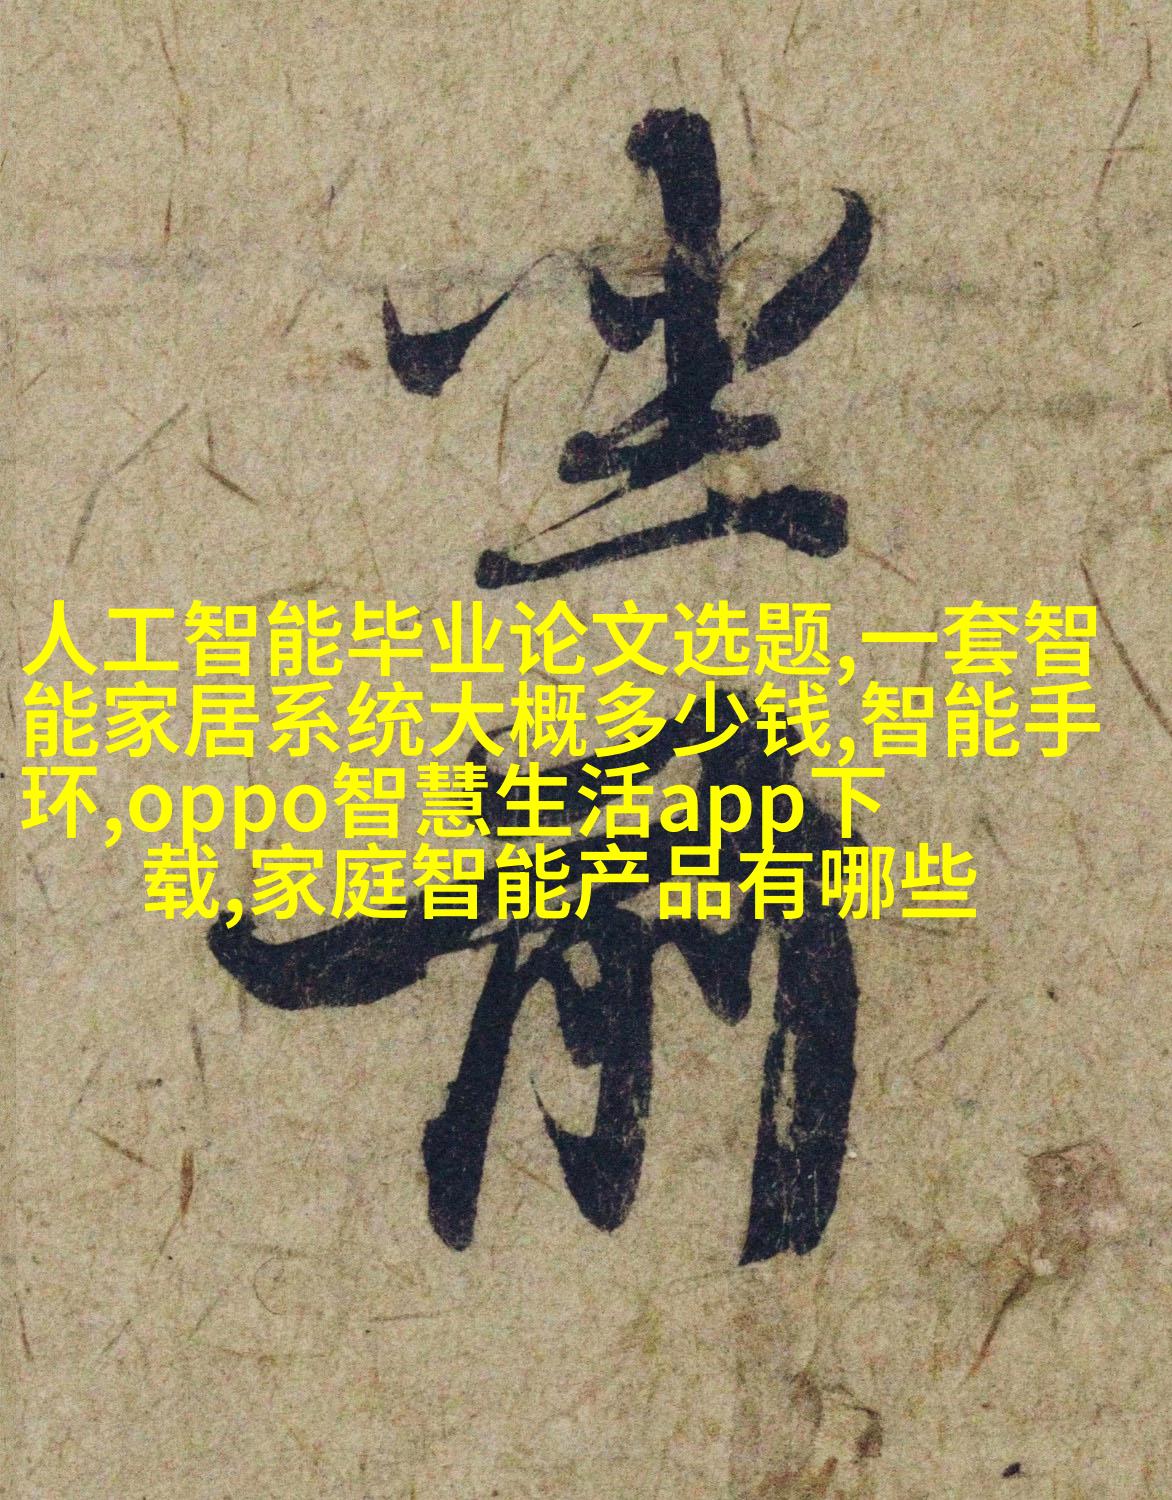 人工智能毕业论文选题,一套智
能家居系统大概多少钱,智能手
环,oppo智慧生活app下
载,家庭智能产品有哪些